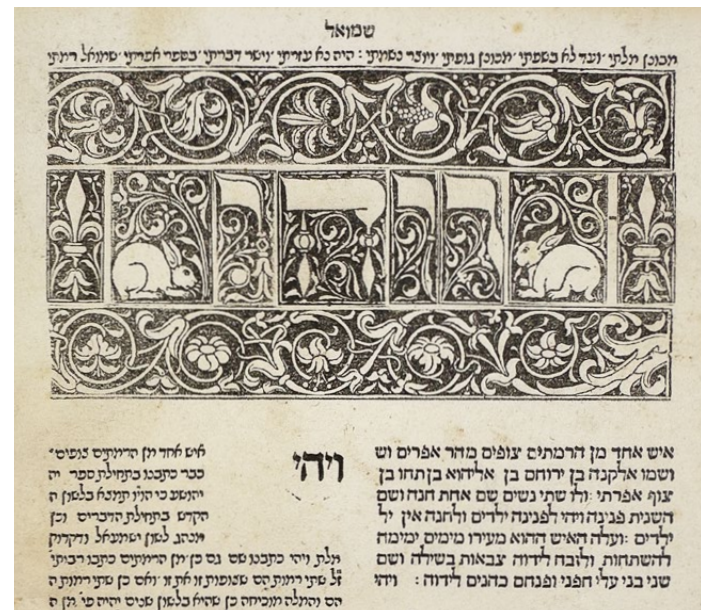 שמואל
מכונן מלתי ׳ ועד לא בשפתי ׳ מכונן גופתי ׳ ויוצר נשמתי : היה נא עזרתי ׳ ויישר דברתי ׳ בספרי אפרתי ׳ שמואל רמתי
ויהי
איש אחד מן הרמתים צופים מהר אפרים וש
ושמו אלקנה בן ירוחם בן אליהוא בן תחו בן
צוף אפרתי : ולו שתי נשים שם אחת חנה ושם
השנית פנינה ויהי לפנינה ילדים ולחנה אין יל
ילדים : ועלה האיש ההוא מעירו מימים ימימה
להשתחות ולזבח לידוה צבאות בשילה ושם
שני בני עלי חפני ופנחס כהנים לידוה : ויהי
ויהי
איש אחד מן הרמתים צופים
כבר כתבנו בתחילת ספר יה
יהושע כי הוו תמצא בלשון ה
הקדש בתחילת הדברים וכן
מנהג לשון ישמעאל ודקדוק
מלת ויהי כתבנו שם גם כן מן הרמתים כתבו רבותי׳
ז״ל שתי רמות הם שצופות זו את זו ׳ ואם כן שתי רמות ה
הם והמלה מוכיחה כן שהיא בלשון שנים יהיה פי׳ מן ה